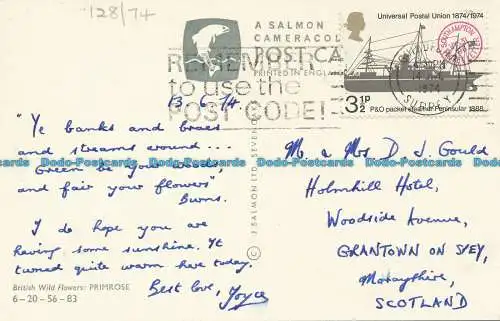 128/74
A SALMON
CAMERACOLOR
POST CARD
PRINTED IN ENGLAND
REMEMBER
to use the
POST CODE!
Universal Postal Union 1874/1974
SOUTHAMPTON
1974
SURREY
3½p
P&O packet steamer Peninsular 1888
13.6.74.
"Ye banks and braes
and streams around...
Green be your woods,
and fair your flowers"
Burns.
I do hope you are
having some sunshine. It
turned quite warm here today.
Best love, Joyce
British Wild Flowers: PRIMROSE
6–20–56–83
© J. SALMON LTD. SEVENOAKS
M. a Mrs D J Gould
Holmhill Hotel,
Woodside Avenue,
GRANTOWN ON SPEY,
Morayshire,
SCOTLAND
Dodo-Postcards Dodo-Postcards Dodo-Postcards Dodo-Postcards Dodo-Postcards